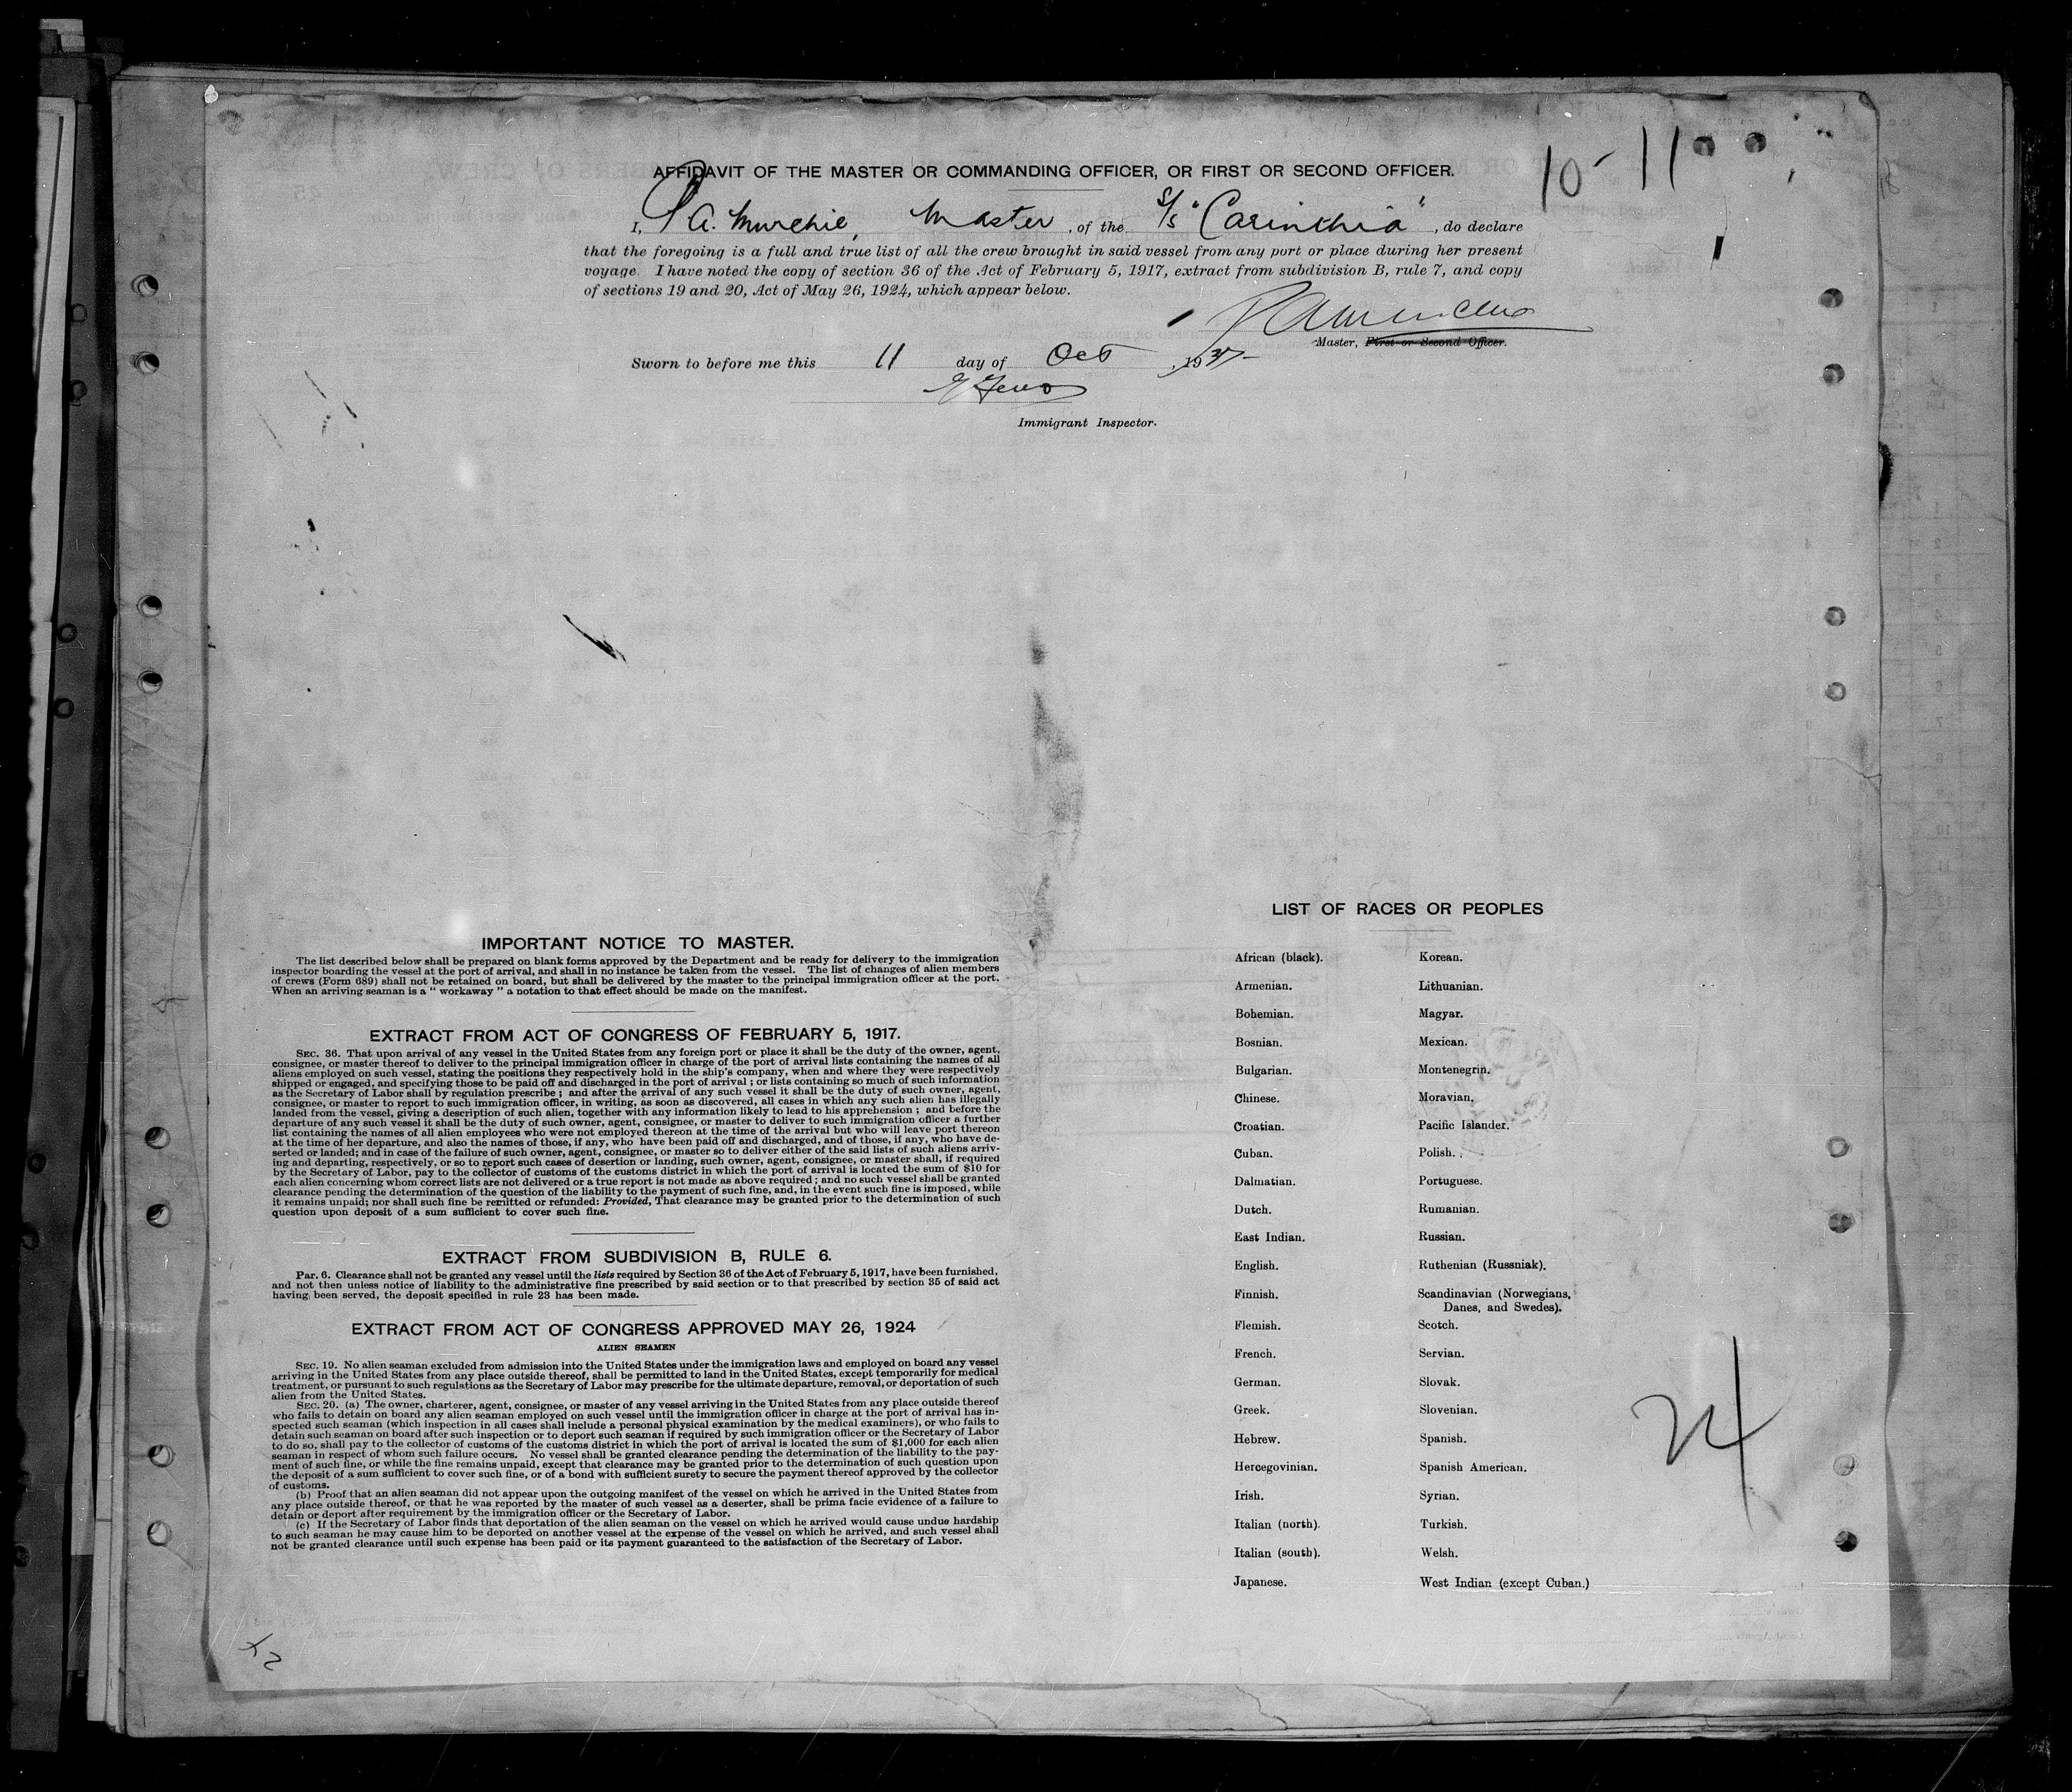 10-11
AFFIDAVIT OF THE MASTER OR COMMANDING OFFICER, OR FIRST OR SECOND OFFICER.
I, P A. Murchie, Master, of the S/S "Carinthia", do declare
that the foregoing is a full and true list of all the crew brought in said vessel from any port or place during her present
voyage. I have noted the copy of section 36 of the Act of February 5, 1917, extract from subdivision B, rule 7, and copy
of sections 19 and 20, Act of May 26, 1924, which appear below.
PAMurchie
Master, First or Second Officer.
Sworn to before me this 11 day of Oct, 1937
Immigrant Inspector.
IMPORTANT NOTICE TO MASTER.
The list described below shall be prepared on blank forms approved by the Department and be ready for delivery to the immigration
inspector boarding the vessel at the port of arrival, and shall in no instance be taken from the vessel. The list of changes of alien members
of crews (Form 689) shall not be retained on board, but shall be delivered by the master to the principal immigration officer at the port.
When an arriving seaman is a " workaway " a notation to that effect should be made on the manifest.
EXTRACT FROM ACT OF CONGRESS OF FEBRUARY 5, 1917.
SEC. 36. That upon arrival of any vessel in the United States from any foreign port or place it shall be the duty of the owner, agent,
consignee, or master thereof to deliver to the principal immigration officer in charge of the port of arrival lists containing the names of all
aliens employed on such vessel, stating the positions they respectively hold in the ship's company, when and where they were respectively
shipped or engaged, and specifying those to be paid off and discharged in the port of arrival ; or lists containing so much of such information
as the Secretary of Labor shall by regulation prescribe ; and after the arrival of any such vessel it shall be the duty of such owner, agent,
consignee, or master to report to such immigration officer, in writing, as soon as discovered, all cases in which any such alien has illegally
landed from the vessel, giving a description of such alien, together with any information likely to lead to his apprehension ; and before the
departure of any such vessel it shall be the duty of such owner, agent, consignee, or master to deliver to such immigration officer a further
list containing the names of all alien employees who were not employed thereon at the time of the arrival but who will leave port thereon
at the time of her departure, and also the names of those, if any, who have been paid off and discharged, and of those, if any, who have de-
serted or landed; and in case of the failure of such owner, agent, consignee, or master so to deliver either of the said lists of such aliens arriv-
ing and departing, respectively, or so to report such cases of desertion or landing, such owner, agent, consignee, or master shall, if required
by the Secretary of Labor, pay to the collector of customs of the customs district in which the port of arrival is located the sum of $10 for
each alien concerning whom correct lists are not delivered or a true report is not made as above required ; and no such vessel shall be granted
clearance pending the determination of the question of the liability to the payment of such fine, and, in the event such fine is imposed, while
it remains unpaid; nor shall such fine be remitted or refunded: Provided, That clearance may be granted prior to the determination of such
question upon deposit of a sum sufficient to cover such fine.
EXTRACT FROM SUBDIVISION B, RULE 6.
Par. 6. Clearance shall not be granted any vessel until the lists required by Section 36 of the Act of February 5, 1917, have been furnished,
and not then unless notice of liability to the administrative fine prescribed by said section or to that prescribed by section 35 of said act
having been served, the deposit specified in rule 23 has been made.
EXTRACT FROM ACT OF CONGRESS APPROVED MAY 26, 1924
ALIEN SEAMEN
SEC. 19. No alien seaman excluded from admission into the United States under the immigration laws and employed on board any vessel
arriving in the United States from any place outside thereof, shall be permitted to land in the United States, except temporarily for medical
treatment, or pursuant to such regulations as the Secretary of Labor may prescribe for the ultimate departure, removal, or deportation of such
alien from the United States.
SEC. 20. (a) The owner, charterer, agent, consignee, or master of any vessel arriving in the United States from any place outside thereof
who fails to detain on board any alien seaman employed on such vessel until the immigration officer in charge at the port of arrival has in-
spected such seaman (which inspection in all cases shall include a personal physical examination by the medical examiners), or who fails to
detain such seaman on board after such inspection or to deport such seaman if required by such immigration officer or the Secretary of Labor
to do so, shall pay to the collector of customs of the customs district in which the port of arrival is located the sum of $1,000 for each alien
seaman in respect of whom such failure occurs. No vessel shall be granted clearance pending the determination of the liability to the pay-
ment of such fine, or while the fine remains unpaid, except that clearance may be granted prior to the determination of such question upon
the deposit of a sum sufficient to cover such fine, or of a bond with sufficient surety to secure the payment thereof approved by the collector
of customs.
(b) Proof that an alien seaman did not appear upon the outgoing manifest of the vessel on which he arrived in the United States from
any place outside thereof, or that he was reported by the master of such vessel as a deserter, shall be prima facie evidence of a failure to
detain or deport after requirement by the immigration officer or the Secretary of Labor.
(c) If the Secretary of Labor finds that deportation of the alien seaman on the vessel on which he arrived would cause undue hardship
to such seaman he may cause him to be deported on another vessel at the expense of the vessel on which he arrived, and such vessel shall
not be granted clearance until such expense has been paid or its payment guaranteed to the satisfaction of the Secretary of Labor.
LIST OF RACES OR PEOPLES
African (black).
Armenian.
Bohemian.
Bosnian.
Bulgarian.
Chinese.
Croatian.
Cuban.
Dalmatian.
Dutch.
East Indian.
English.
Finnish.
Flemish.
French.
German.
Greek.
Hebrew.
Hercegovinian.
Irish.
Italian (north).
Italian (south).
Japanese.
Korean.
Lithuanian.
Magyar.
Mexican.
Montenegrin.
Moravian.
Pacific Islander.
Polish.
Portuguese.
Rumanian.
Russian.
Ruthenian (Russniak).
Scandinavian (Norwegians,
Danes, and Swedes).
Scotch.
Servian.
Slovak.
Slovenian.
Spanish.
Spanish American.
Syrian.
Turkish.
Welsh.
West Indian (except Cuban.)
24